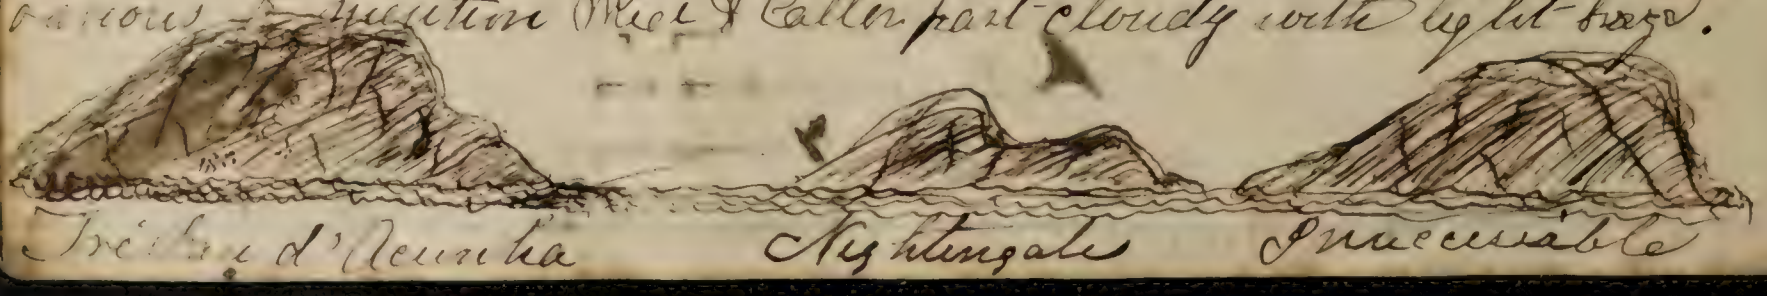 mention part cloudy with light
Tristan d'Acunha Nightingale Innaccessiable